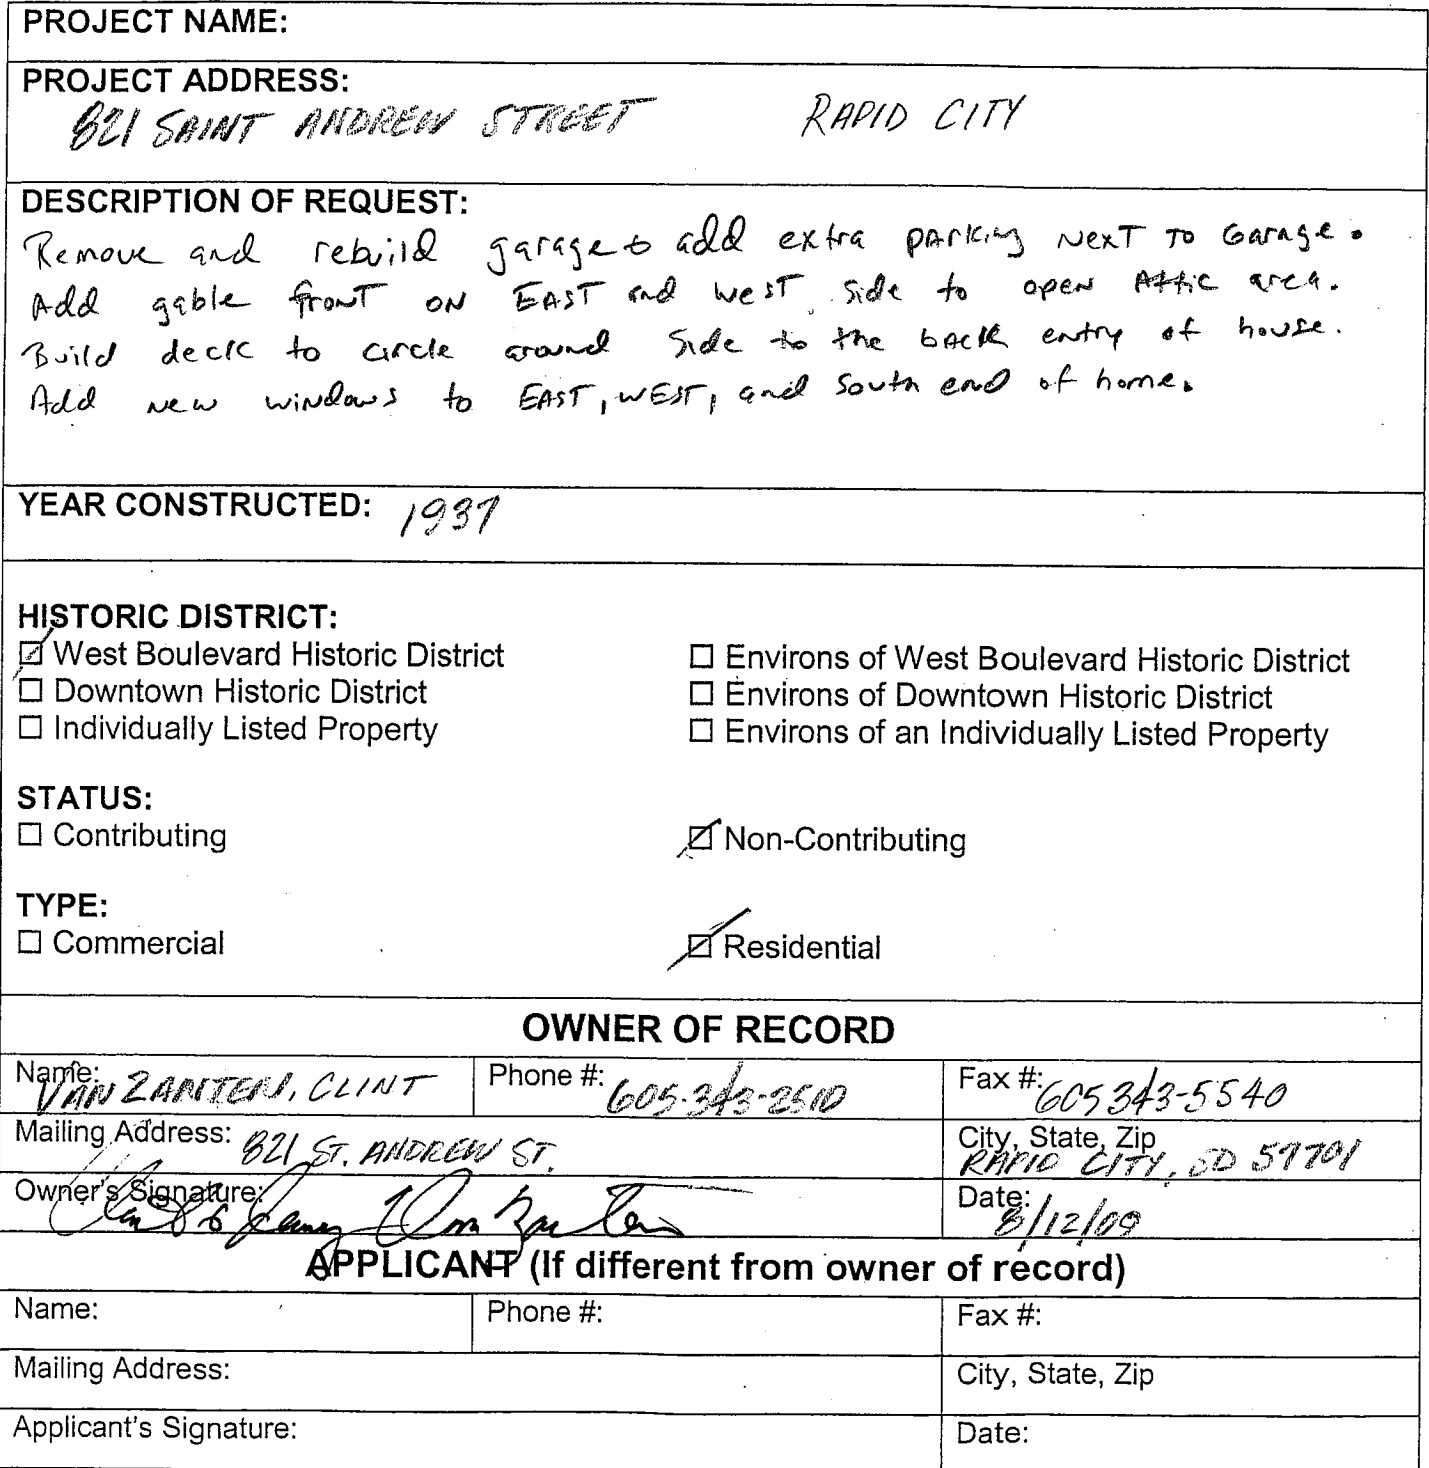 PROJECT NAME:
PROJECT ADDRESS:
821 SAINT ANDREW STREET RAPID CITY
DESCRIPTION OF REQUEST:
Remove and rebuild garage & add extra parking Next to Garage.
Add gable front on EAST and west side to open Attic area.
Build deck to circle around side to the back entry of house.
Add new windows to EAST, WEST, and south end of home.
YEAR CONSTRUCTED: 1937
HISTORIC DISTRICT:
☑ West Boulevard Historic District ☐ Environs of West Boulevard Historic District
☐ Downtown Historic District ☐ Environs of Downtown Historic District
☐ Individually Listed Property ☐ Environs of an Individually Listed Property
STATUS:
☐ Contributing ☑ Non-Contributing
TYPE:
☐ Commercial ☑ Residential
OWNER OF RECORD
Name: VAN ZANTEN, CLINT Phone #: 605-343-2510 Fax #: 605 343-5540
Mailing Address: 821 ST. ANDREW ST. City, State, Zip RAPID CITY, SD 57701
Owner's Signature: Van Zanten Date: 8/12/09
APPLICANT (If different from owner of record)
Name: Phone #: Fax #:
Mailing Address: City, State, Zip
Applicant's Signature: Date: